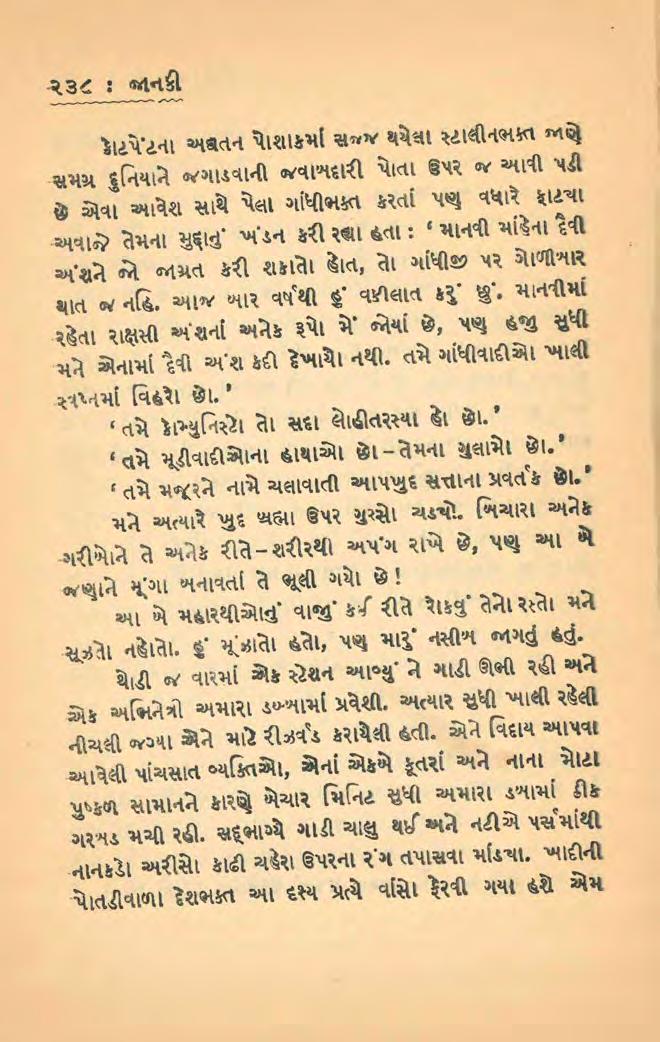 ૨૩૮ : જાનકી
કોટપેંટના અદ્યતન પોશાકમાં સજ્જ થયેલા સ્ટાલીનભક્ત જાણે
સમગ્ર દુનિયાને જગાડવાની જવાબદારી પોતા ઉપર જ આવી પડી
છે એવા આવેશ સાથે પેલા ગાંધીભક્ત કરતાં પણ વધારે ફાટયા
અવાજે તેમના મુદ્દાનું ખંડન કરી રહ્યા હતા : ‘ માનવી માંહેના દૈવી
અંશને જો જાગ્રત કરી શકાતો હોત, તો ગાંધીજી પર ગોળીબાર
થાત જ નહિ. આજ બાર વર્ષથી હું વકીલાત કરું છું. માનવીમાં
રહેતા રાક્ષસી અંશનાં અનેક રૂપો મેં જોયાં છે, પણ હજી સુધી
મને એનામાં દૈવી અંશ કદી દેખાયો નથી. તમે ગાંધીવાદીઓ ખાલી
સ્વપ્નમાં વિહરો છો. ’
‘ તમે કોમ્યુનિસ્ટો તો સદા લોહીતરસ્યા હો છો. ’
‘ તમે મૂડીવાદીઓના હાથાઓ છો – તેમના ગુલામો છો. ’
‘ તમે મજૂરને નામે ચલાવાતી આપખુદ સત્તાના પ્રવર્તક છો. ’
મને અત્યારે ખુદ બ્રહ્મા ઉપર ગુસ્સો ચડયો. બિચારા અનેક
ગરીબોને તે અનેક રીતે – શરીરથી અપંગ રાખે છે, પણ આ બે
જણાને મૂંગા બનાવતાં તે ભૂલી ગયો છે !
આ બે મહારથીઓનું વાજું કઈ રીતે રોકવું તેનો રસ્તો મને
સૂઝતો નહોતો. હું મૂંઝાતો હતો, પણ મારું નસીબ જાગતું હતું.
થોડી જ વારમાં એક સ્ટેશન આવ્યું ને ગાડી ઊભી રહી અને
એક અભિનેત્રી અમારા ડબ્બામાં પ્રવેશી. અત્યાર સુધી ખાલી રહેલી
નીચલી જગ્યા એને માટે રીઝર્વડ કરાયેલી હતી. એને વિદાય આપવા
આવેલી પાંચસાત વ્યક્તિઓ, એનાં એકબે કૂતરાં અને નાના મોટા
પુષ્કળ સામાનને કારણે બેચાર મિનિટ સુધી અમારા ડબામાં ઠીક
ગરબડ મચી રહી. સદ્‌ભાગ્યે ગાડી ચાલુ થઈ અને નટીએ પર્સમાંથી
નાનકડો અરીસો કાઢી ચહેરા ઉપરના રંગ તપાસવા માંડયા. ખાદીની
પોતડીવાળા દેશભક્ત આ દશ્ય પ્રત્યે વાંસો ફેરવી ગયા હશે એમ